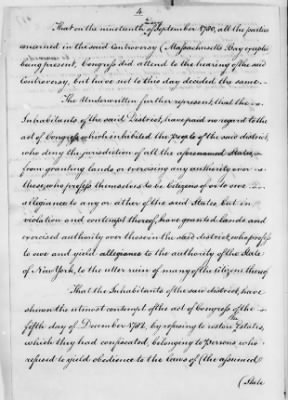 4
That on the nineteenth of September 1780, all the parties
concerned in the said Controversy (Massachusetts Bay excepted
being present, Congress did attend to the hearing of the said
Controversy, but have not to this day decided the same.
The Underwritten further represent, that the
Inhabitants of the said District, have paid no regard to the
act of Congress which inhibited the People of the said district,
who deny the jurisdiction of all the aforenamed States,
from granting lands or exercising any authority over
those, who profess themselves to be Citizens of or to owe
allegiance to any or either of the said States, but in
violation and contempt thereof, have granted lands and
exercised authority over those in the said district, who profess
to owe and yield allegiance to the authority of the State
of New York, to the utter ruin of many of the Citizens thereof
That the Inhabitants of the said district, have
shewn the utmost contempt of the act of Congress of the
fifth day of December 1782, by refusing to restore Estates,
which they had confiscated, belonging to Persons who
refused to yield obedience to the laws of (the assumed
(State